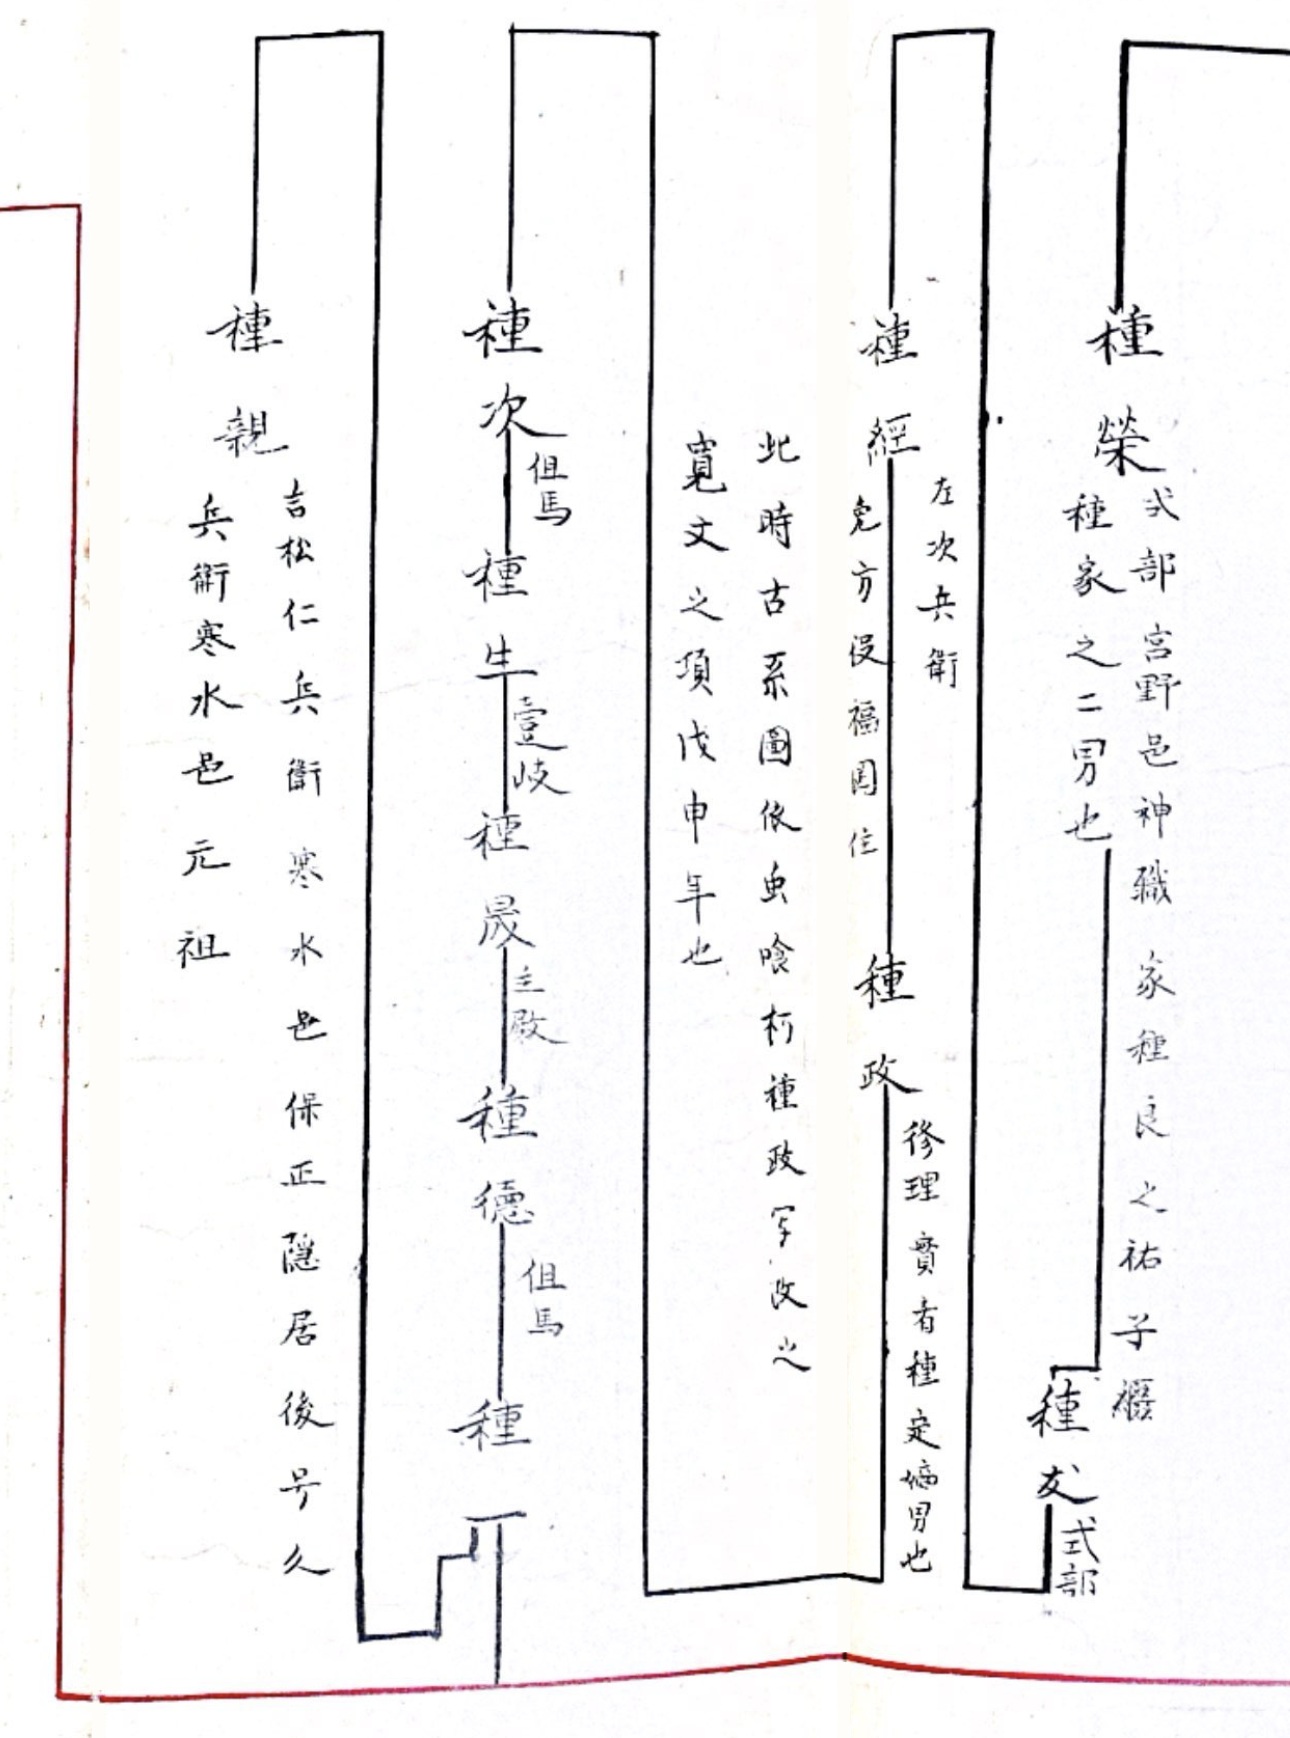 種榮
式部宮野邑神職家種良之祐子
種家之二男也
種友
式部
種經
左次兵衛
免方役福岡住
種政
修理實者種定嫡男也
此時古系圖依虫喰朽種政写改之
寛文之項戊申年也
種次
但馬
種生
壹岐
種晟
主殿
種德
但馬
種
種親
吉松仁兵衛寒水邑保正隠居後号久
兵衛寒水邑元祖